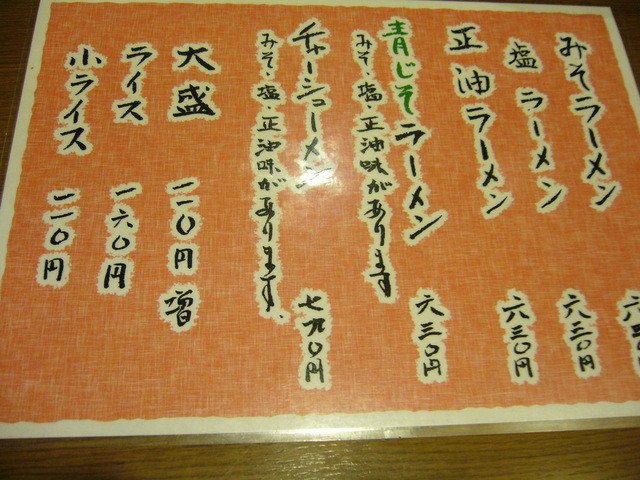 みそラーメン 六三〇円
塩ラーメン 六三〇円
正油ラーメン 六三〇円
青じそラーメン 六三〇円
みそ・塩・正油味があります
チャーシューメン 七九〇円
みそ・塩・正油味があります、
大盛 一一〇円増
ライス 一六〇円
小ライス 一一〇円